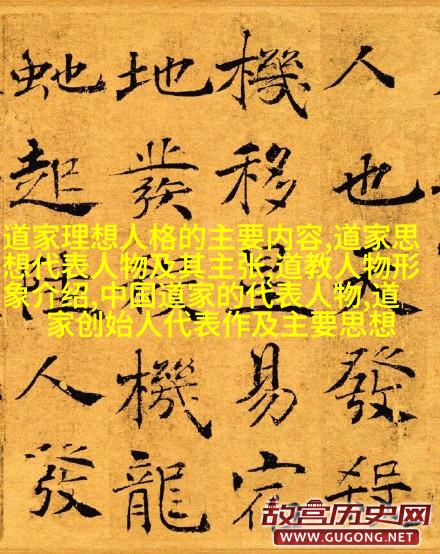 人也發殺
機移易宿
地發機龍
虵起人發
道家理想人格的主要内容,道家思
想代表人物及其主张,道教人物形
象介绍,中国道家的代表人物,道
家创始人代表作及主要思想
故宫历史网
WWW.GUGONG.NET